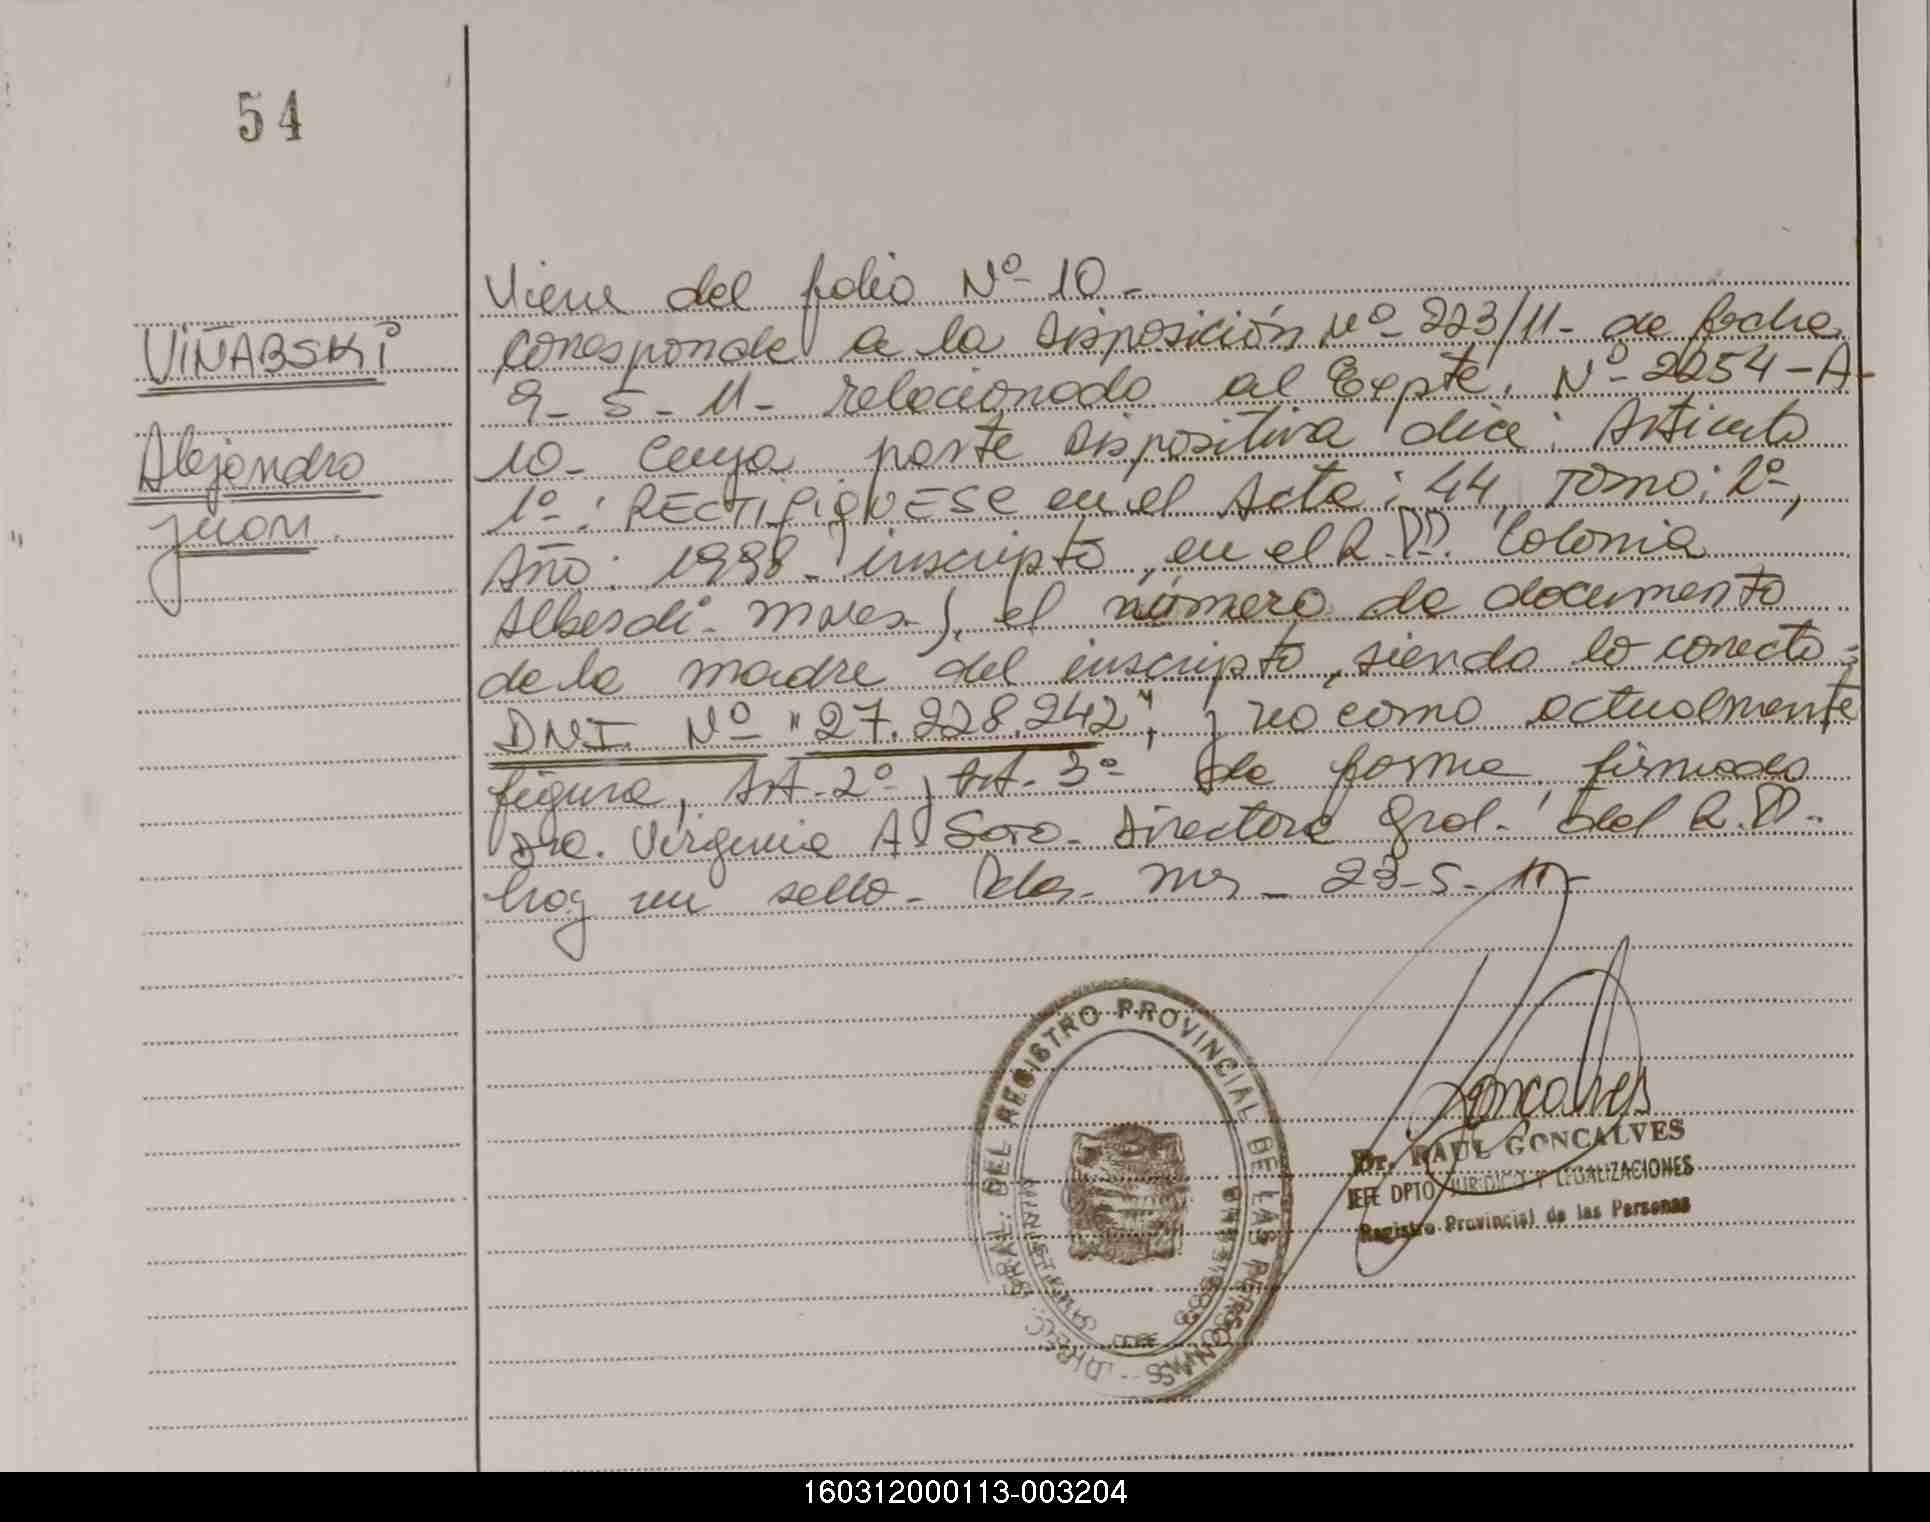 54
VIÑABSKI
Alejandro
Juan.
Viene del folio Nº 10-
corresponde a la disposición Nº 223/11- de fecha
9-5-11- relacionado al Expte. Nº 2254-A-
10- cuya parte dispositiva dice: Articulo
1º: RECTIFIQUESE en el Acta: 44 Tomo: 2º,
Año: 1998- inscripto, en el R.P.P. Colonia
Alberdi- Mnes-), el número de documento
de la madre del inscripto, siendo lo correcto:
DNI. Nº "27.228.242", y no como actualmente
figura, Art. 2º, Art. 3º de forma, firmado
Dra. Virginia A. Soto- Directora Gral. del R.P.P.
hay un sello- Pdas- Mns- 23-5-11-
DIREC. GRAL. DEL REGISTRO PROVINCIAL DE LAS PERSONAS
Goncalves
Dr. RAUL GONCALVES
JEFE DPTO. JURIDICO Y LEGALIZACIONES
Registro Provincial de las Personas
160312000113-003204